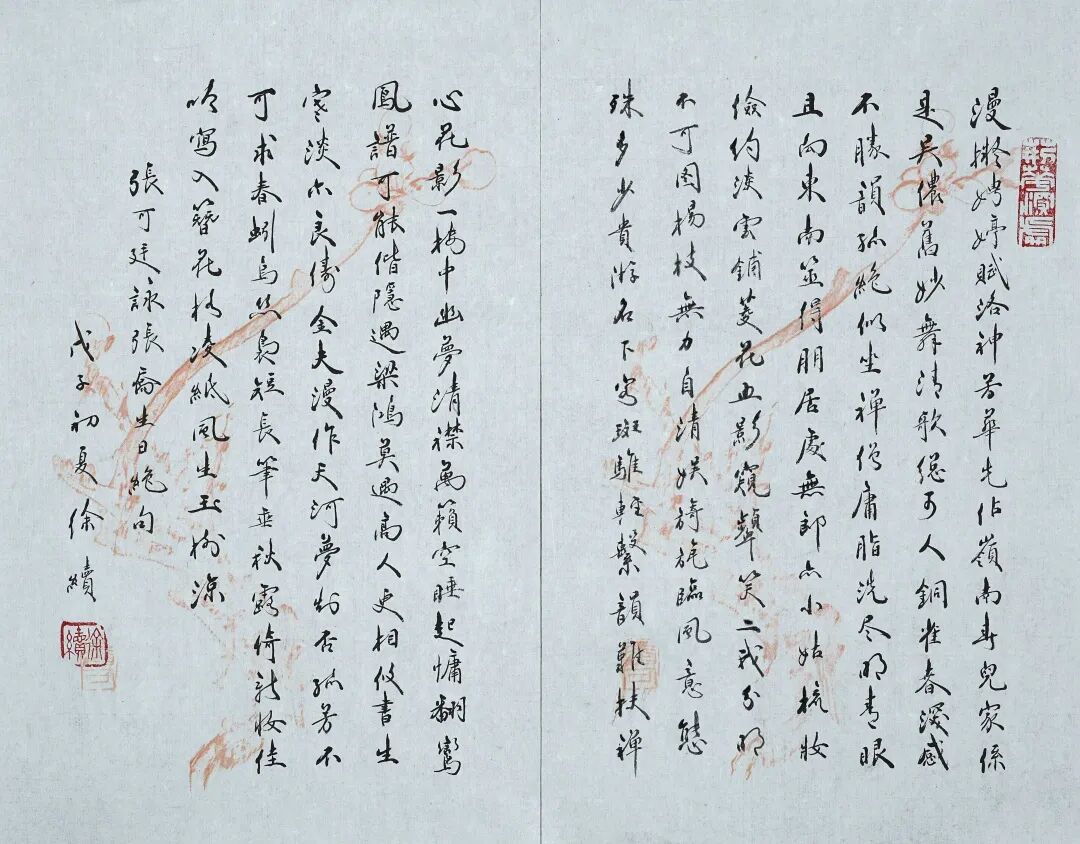 漫擬娉婷賦洛神芳華先佔嶺南春兒家係
是吳儂舊妙舞清歌總可人銅雀春深感
不勝韻孤絕似坐禪僧庸脂洗尽明青眼
且向東南並得朋居處無郎亦小姑梳妝
儉約淡雲鋪菱花五影窺顰笑二我分明
不可圖楊枝無力自清娛旖旎臨風意態
殊多少貴游名下客斑騅輕繫韻難扶禪
心花影一橋中幽夢清襟萬籟空睡起慵翻鸞
鳳譜可能偕隱遇梁鴻莫遇高人更相攸書生
寒淡亦良儔金夫漫作天河夢判否孤芳不
可求春蚓烏絲裊短長筆垂秋露倚新妝佳
吟寫入簪花格凌紙風生玉樹涼
張可廷詠張喬生日絕句
戊子初夏徐續
徐續